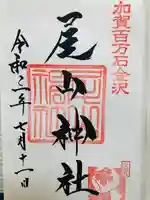 加賀百万石金沢
尾山神社
令和二年七月十一日